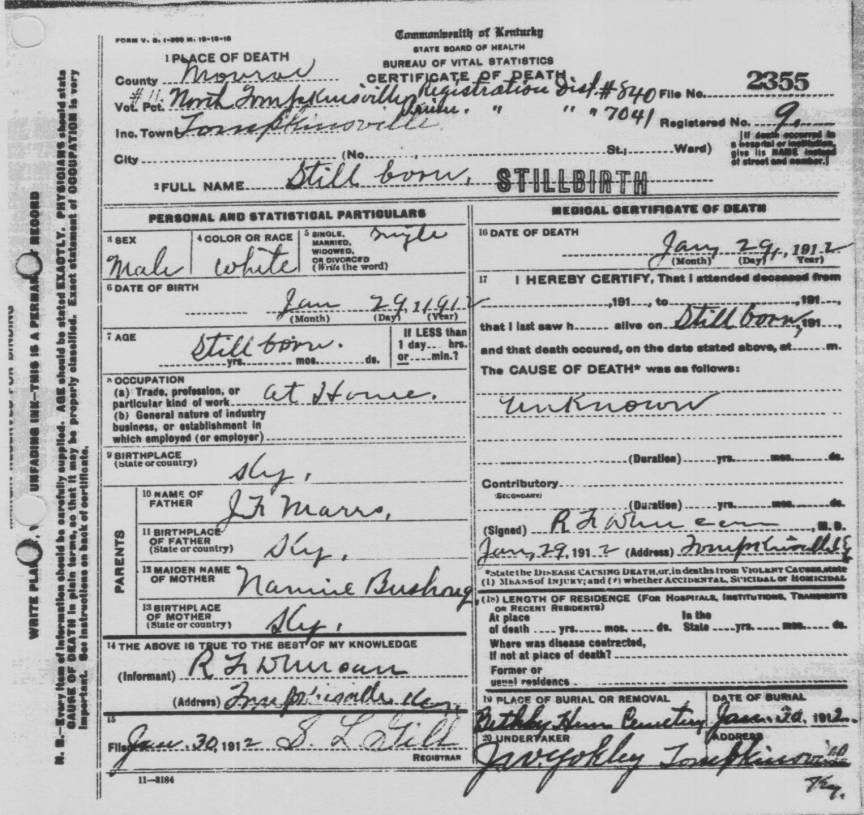 Commonwealth of Kentucky
STATE BOARD OF HEALTH
BUREAU OF VITAL STATISTICS
CERTIFICATE OF DEATH
1 PLACE OF DEATH
County Monroe
#11 Vot. Pct. North Tompkinsville Registration Dist. #840 File No. 2355
Inc. Town Tompkinsville Prim. " " " 7041 Registered No. 9.
[If death occurred in a hospital or institution, give its NAME instead of street and number.]
City (No. St.; Ward)
2 FULL NAME Still born. STILLBIRTH
PERSONAL AND STATISTICAL PARTICULARS
3 SEX Male
4 COLOR OR RACE White
5 SINGLE, MARRIED, WIDOWED, OR DIVORCED (Write the word) Single
6 DATE OF BIRTH
Jan 29, 1912
(Month) (Day) (Year)
7 AGE Still born.
yrs. mos. ds.
If LESS than
1 day hrs.
or min.?
8 OCCUPATION
(a) Trade, profession, or
particular kind of work at Home.
(b) General nature of industry
business, or establishment in
which employed (or employer)
9 BIRTHPLACE
(State or country) Ky.
PARENTS
10 NAME OF FATHER J F Marrs,
11 BIRTHPLACE OF FATHER
(State or country) Ky.
12 MAIDEN NAME OF MOTHER Nannie Bushong
13 BIRTHPLACE OF MOTHER
(State or country) Ky.
14 THE ABOVE IS TRUE TO THE BEST OF MY KNOWLEDGE
(Informant) R F Duncan
(Address) Tompkinsville Ky.
15
Filed Jan. 30, 1912 S. L. Gill
REGISTRAR
11-3184
MEDICAL CERTIFICATE OF DEATH
16 DATE OF DEATH
Jan, 29, 1912
(Month) (Day) Year)
17 I HEREBY CERTIFY, That I attended deceased from
,191 , to ,191 ,
that I last saw h alive on Still born, 191 ,
and that death occured, on the date stated above, at m.
The CAUSE OF DEATH* was as follows:
Unknown
(Duration) yrs. mos. ds.
Contributory
SECONDARY)
(Duration) yrs. mos. ds.
(Signed) R F Duncan, M. D.
Jan, 29, 1912 (Address) Tompkinsville Ky
*State the DISEASE CAUSING DEATH, or, in deaths from VIOLENT CAUSES, state
(1) MEANS of INJURY; and (2) whether ACCIDENTAL, SUICIDAL or HOMICIDAL
(18) LENGTH OF RESIDENCE (FOR HOSPITALS, INSTITUTIONS, TRANSIENTS
OR RECENT RESIDENTS)
At place In the
of death yrs. mos. ds. State yrs. mos. ds.
Where was disease contracted,
If not at place of death?
Former or
usual residence
19 PLACE OF BURIAL OR REMOVAL DATE OF BURIAL
Cemetery Jan. 30, 1912.
20 UNDERTAKER ADDRESS
J W Yokley Tompkinsville
Ky.
WRITE UNFADING INK—THIS IS A RECORD
N. B.—Every item of information should be carefully supplied. AGE should be stated EXACTLY. PHYSICIANS should state
CAUSE OF DEATH in plain terms, so that it may be properly classified. Exact statement of OCCUPATION is very
important. See instructions on back of certificate.